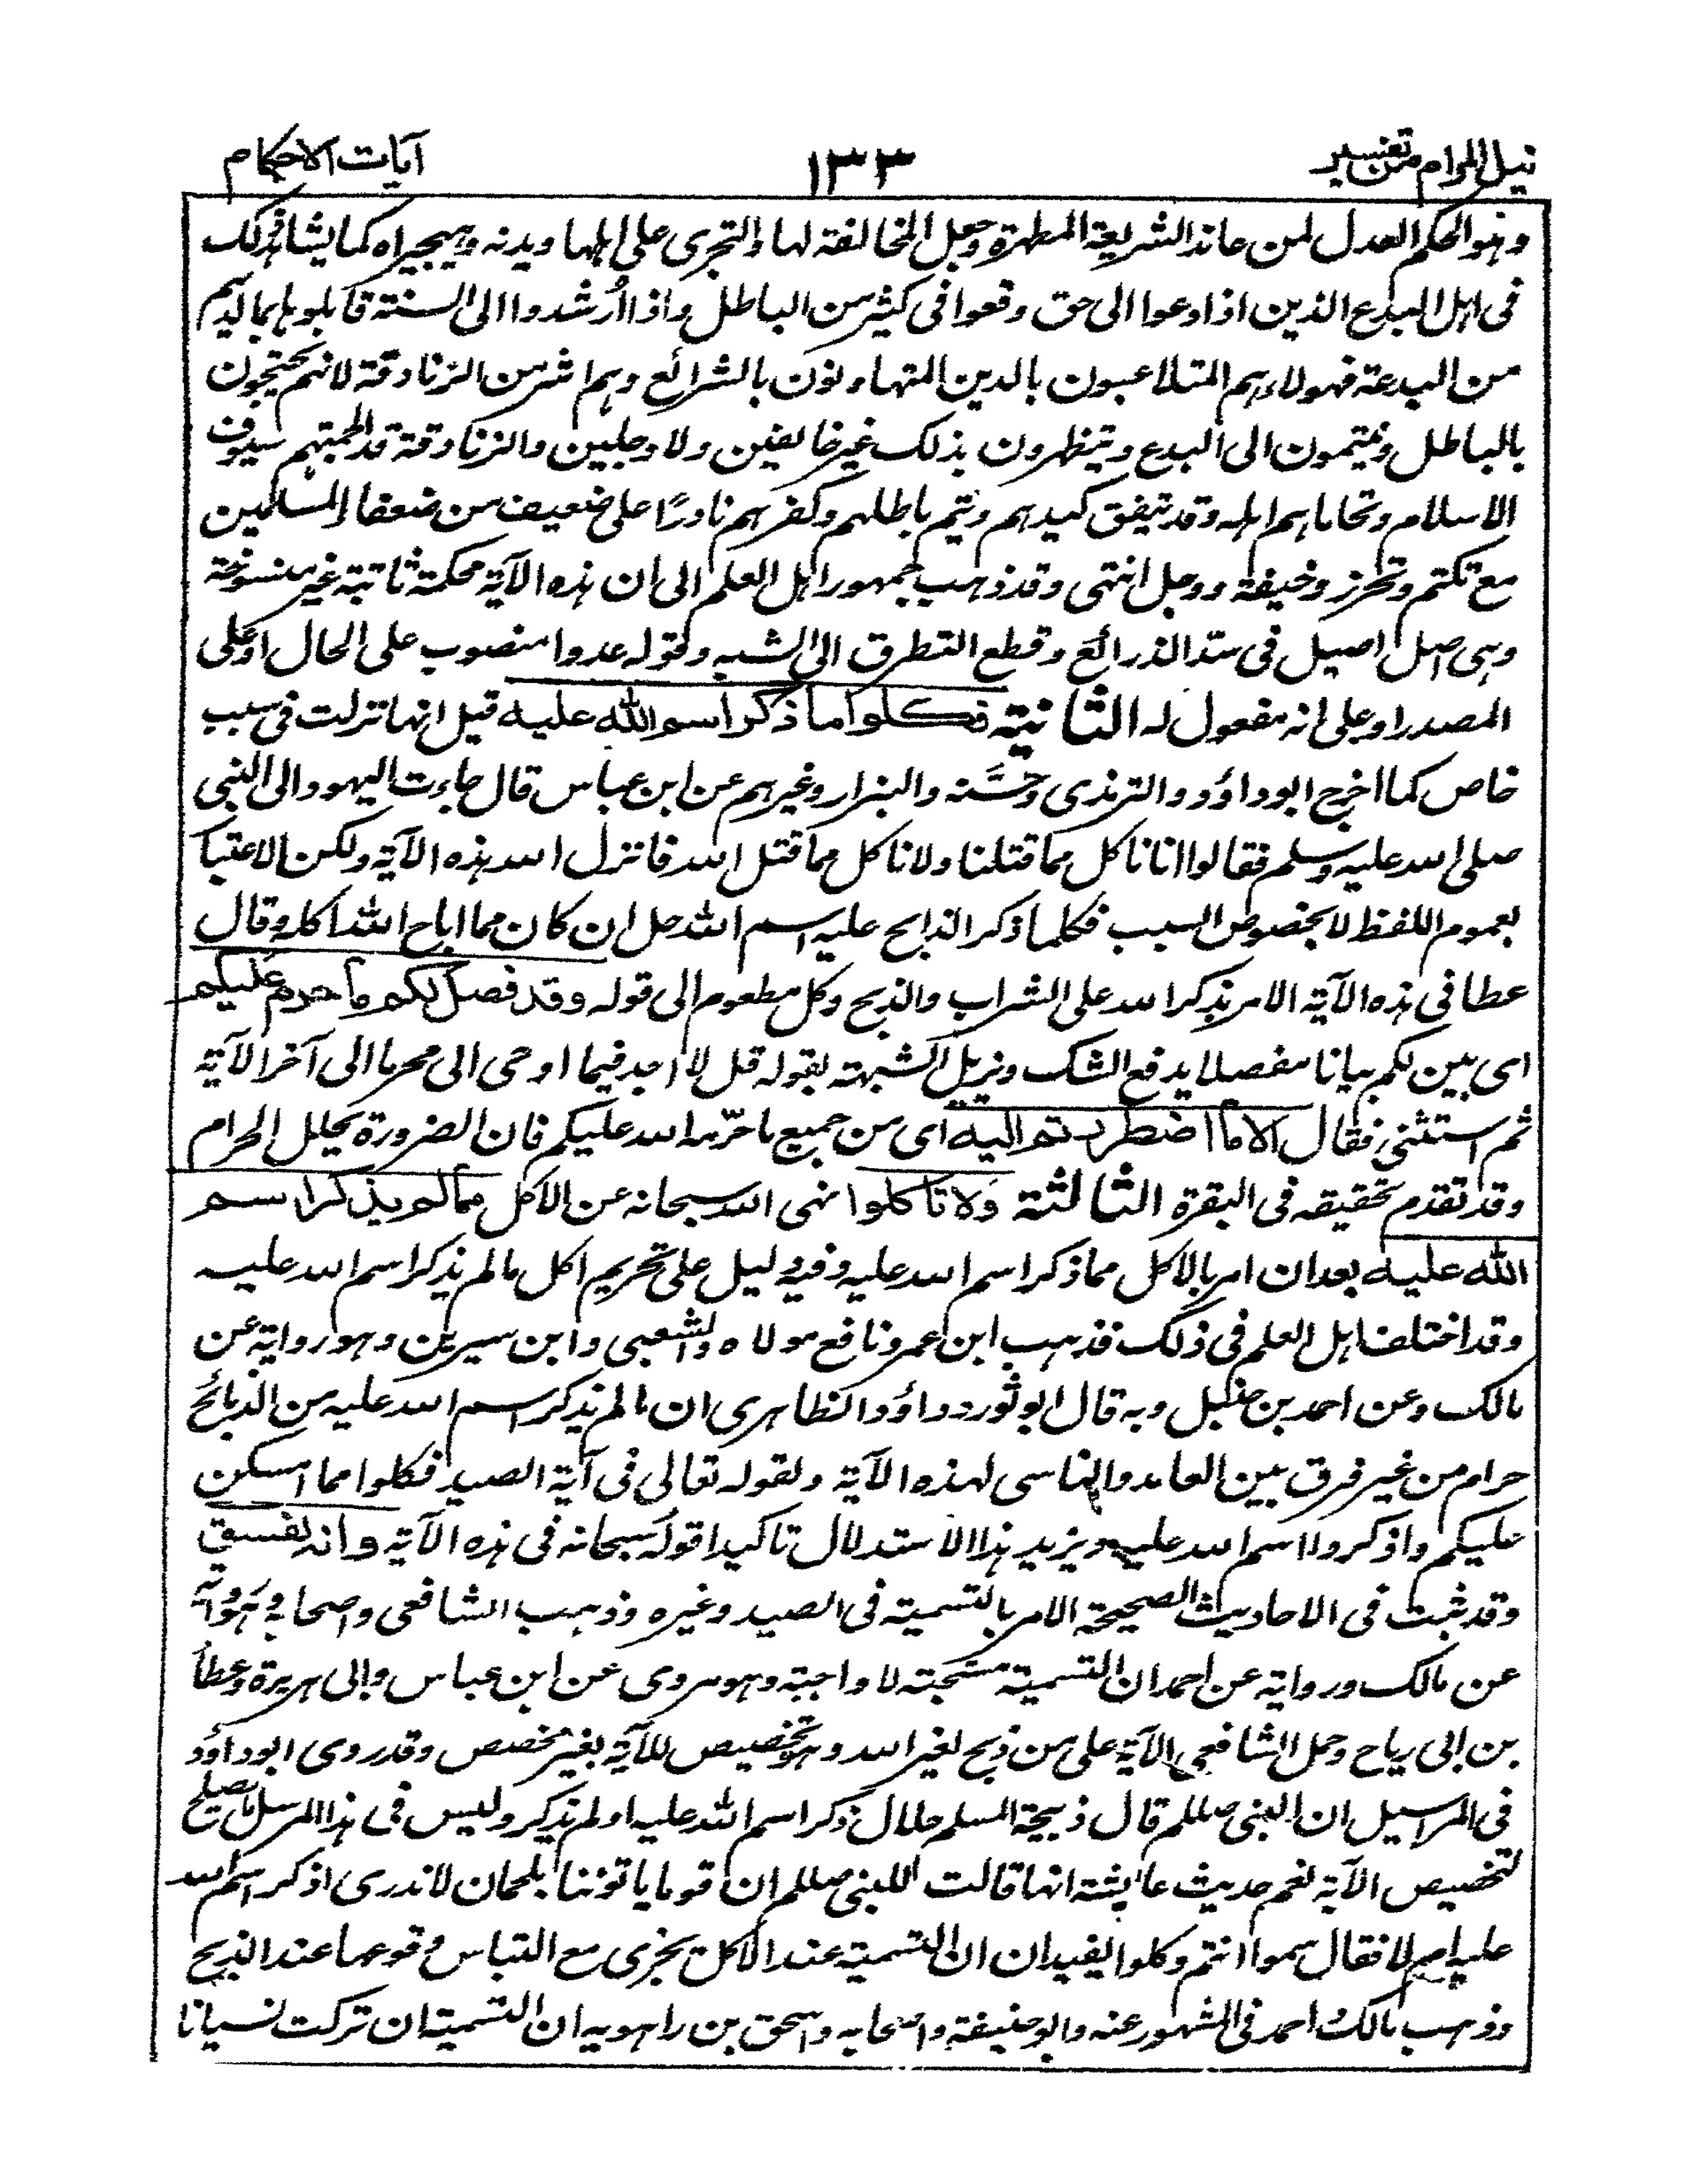 نيل المرام من تفسير ١٣٣ آيات الاحكام
وهو الحكم العدل لمن عاند الشريعة المطهرة وجعل المخالفة لها والتجرى على اهلها ديدنه وهجيراه كما يشاهد ذلك
فى اهل البدع الذين اذا دعوا الى حق وقعوا فى كثير من الباطل واذا ارشدوا الى السنة قابلوها بما لديهم
من البدعة فهولاء هم المتلاعبون بالدين المتهاونون بالشرائع وهم اشر من الزنادقة لانهم يحتجون
بالباطل وينتمون الى البدع ويتظهرون بذلك غير خائفين ولا وجلين والزنادقة قد الجمتهم سيوف
الاسلام وتحاماهم اهله وقد ينفق كيدهم ويتم باطلهم وكفرهم نادرًا على ضعيف من ضعفاء المسلمين
مع تكتم وتحرز وخيفة ووجل انتهى وقد ذهب جمهور اهل العلم الى ان هذه الآية محكمة ثابتة غير منسوخة
وهى اصل اصيل فى سدّ الذرائع وقطع التطرق الى الشبه وقوله عدوا منصوب على الحال او على
المصدر او على انه مفعول له الثانية فكلوا مما ذكر اسم الله عليه قيل انها نزلت فى سبب
خاص كما اخرج ابو داؤد والترمذى وحسَّنه والبزار وغيرهم عن ابن عباس قال جاءت اليهود الى النبى
صلى الله عليه وسلم فقالوا انا ناكل مما قتلنا ولا ناكل مما قتل الله فانزل الله هذه الآية ولكن الاعتبا
بعموم اللفظ لا بخصوص السبب فكلما ذكر الذابح عليه اسم الله حل ان كان مما اباح الله اكله وقال
عطا فى هذه الآية الامر بذكر الله على الشراب والذبح وكل مطعوم الى قوله وقد فصل لكم ما حرم عليكم
اى بين لكم بيانا مفصلا يدفع الشك ويزيل الشبهة بقوله قل لا اجد فيما اوحى الى محرما الى آخر الآية
ثم استثنى فقال الا ما اضطررتم اليه اى من جميع ما حرّمه الله عليكم فان الضرورة تحلل الحرام
وقد تقدم تحقيقه فى البقرة الثالثة ولا تاكلوا نهى الله سبحانه عن الاكل مما لم يذكر اسم
الله عليه بعد ان امر بالاكل مما ذكر اسم الله عليه وفيه دليل على تحريم اكل ما لم يذكر اسم الله عليه
وقد اختلف اهل العلم فى ذلك فذهب ابن عمر ونافع مولاه والشعبى وابن سيرين وهو رواية عن
مالك وعن احمد بن حنبل وبه قال ابو ثور وداؤد الظاهرى ان ما لم يذكر اسم الله عليه من الذبائح
حرام من غير فرق بين العامد والناسى لهذه الآية ولقوله تعالى فى آية الصيد فكلوا مما امسكن
عليكم واذكروا اسم الله عليه ويزيد هذا الاستدلال تاكيدا قوله سبحانه فى هذه الآية وانه لفسق
وقد ثبت فى الاحاديث الصحيحة الامر بالتسمية فى الصيد وغيره وذهب الشافعى واصحابه وهو رواية
عن مالك ورواية عن احمد ان التسمية مستحبة لا واجبة وهو مروى عن ابن عباس وابى هريرة وعطاء
بن ابى رباح وحمل الشافعى الآية على من ذبح لغير الله وهو تخصيص للآية بغير مخصص وقد روى ابو داؤد
فى المراسيل ان النبى صللم قال ذبيحة المسلم حلال ذكر اسم الله عليه او لم يذكر وليس فى هذا المرسل ما يصلح
لتخصيص الآية نعم حديث عايشة انها قالت للنبى صللم ان قوما ياتوننا بلحمان لا ندرى اذكر اسم الله
عليه ام لا فقال سموا انتم وكلوا يفيد ان ان التسمية عند الاكل يجزى مع التباس وقوعها عند الذبح
وذهب مالك واحمد فى المشهور عنه وابو حنيفة واصحابه واسحق بن راهويه ان التسمية ان تركت نسيانا